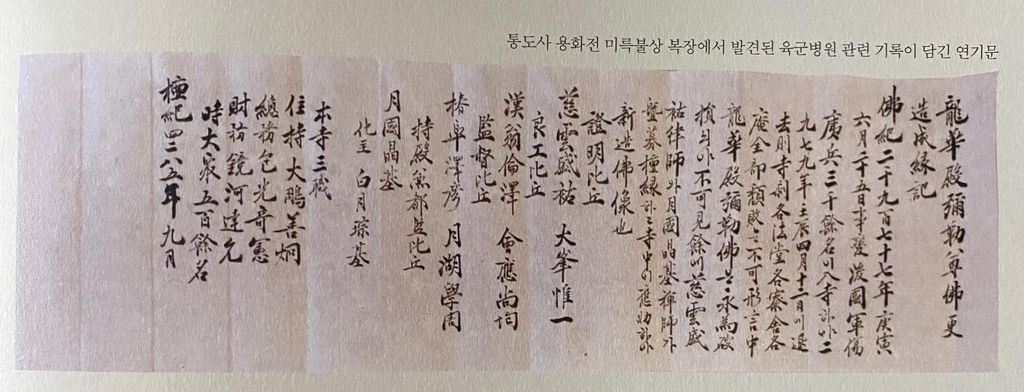 통도사 용화전 미륵불상 복장에서 발견된 육군병원 관련 기록이 담긴 연기문
龍華殿彌勒尊佛更
造成緣記
佛紀二千九百七十七年庚寅
六月二十五日事變後國軍傷
廣兵三千餘名이入寺하야二
九七九年壬辰四月十二日에退
去則寺刹各法堂各寮舍各
庵全部頹敗는不可形言中
龍華殿彌勒佛은永爲破
損되야不可見餘에慈雲盛
祐律師와月國晶基禪師가
發募檀緣하고寺中에應助하야
新造佛像也
證明比丘
慈雲盛祐 大峯惟一
良工比丘
漢翁倫澤 會應尚均
監督比丘
椿舟澤彦 月湖學周
持殿兼都監比丘
月國晶基
化主 白月琮基
本寺三職
住持 大鵬善炯
總務 包光奇憲
財務 鏡河達允
時大衆五百餘名
檀紀四二八五年 九月